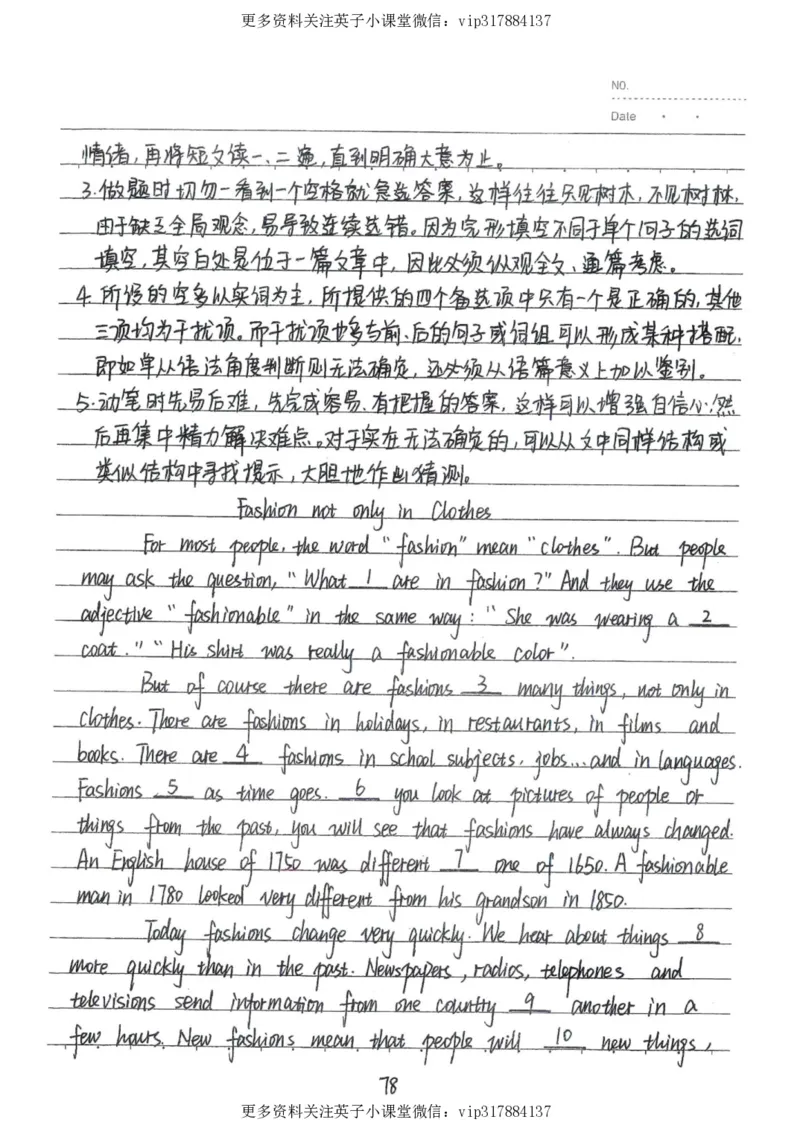 更多资料关注英子小课堂微信：vip317884137
NO.
Date
情绪,再将短文读一、二遍,直到明确大意为止。
3.做题时切勿一看到一个空格就急选答案,这样往往只见树木,不见树林,
由于缺乏全局观念,易导致连续选错。因为完形填空不同于单个句子的选词
填空,其空白处是位于一篇文章中,因此必须纵观全文、通篇考虑。
4.所设的空多以实词为主,所提供的四个备选项中只有一个是正确的,其他
三项均为干扰项。而干扰项也多与前、后的句子或词组可以形成某种搭配,
即如单从语法角度判断则无法确定,还必须从语篇意义上加以鉴别。
5.动笔时先易后难,先完成容易、有把握的答案,这样可以增强自信心,然
后再集中精力解决难点。对于实在无法确定的,可以从文中同样结构或
类似结构中寻找提示,大胆地作出猜测。
Fashion not only in Clothes
For most people, the word "fashion" mean "clothes". But people
may ask the question, "What 1 are in fashion?" And they use the
adjective "fashionable" in the same way: "She was wearing a 2
coat." "His shirt was really a fashionable color".
But of course there are fashions 3 many things, not only in
clothes. There are fashions in holidays, in restaurants, in films and
books. There are 4 fashions in school subjects, jobs...and in languages.
Fashions 5 as time goes. 6 you look at pictures of people or
things from the past, you will see that fashions have always changed.
An English house of 1750 was different 7 one of 1650. A fashionable
man in 1780 looked very different from his grandson in 1850.
Today fashions change very quickly. We hear about things 8
more quickly than in the past. Newspapers, radios, telephones and
televisions send information from one country 9 another in a
few hours. New fashions mean that people will 10 new things,
78
更多资料关注英子小课堂微信：vip317884137